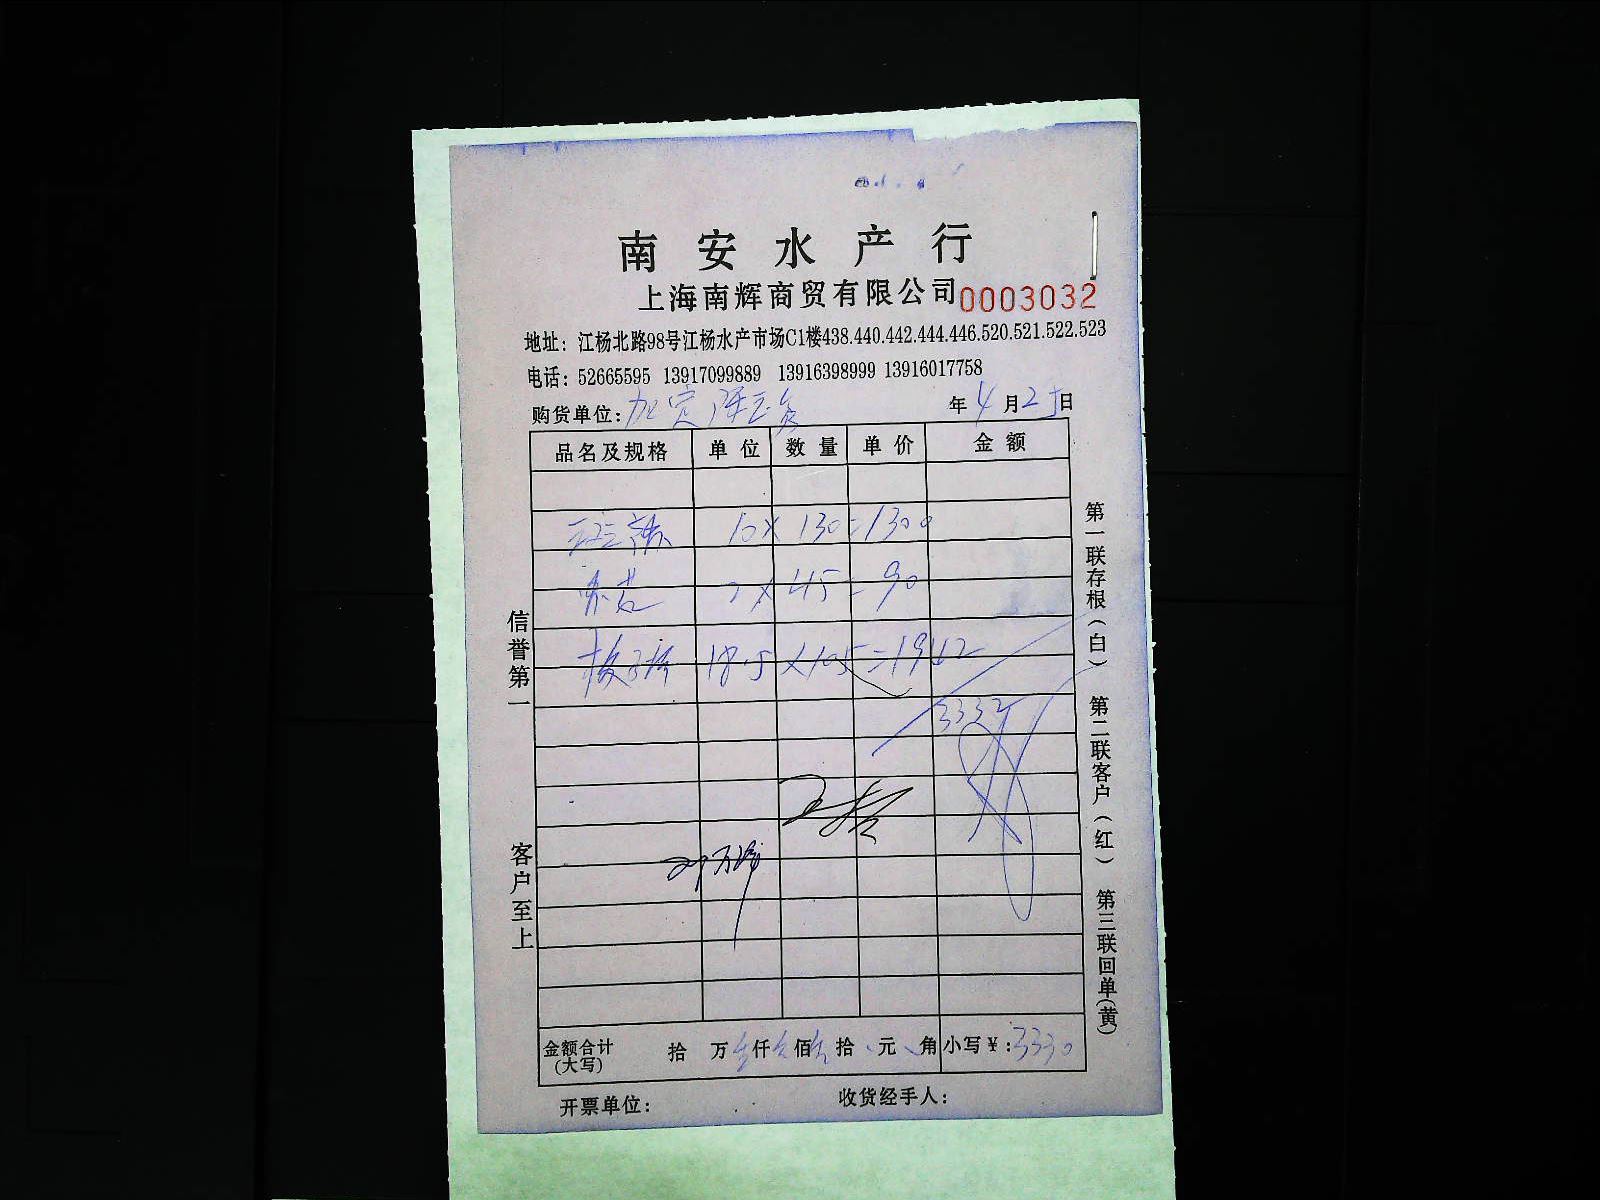 南安水产行
上海南辉商贸有限公司 0003032
地址：江杨北路98号江杨水产市场C1楼438.440.442.444.446.520.521.522.523
电话：52665595 13917099889 13916398999 13916017758
购货单位： 年 4 月 25 日
品名及规格 单位 数量 单价 金额
10×130=1300
2×45=90
18.5×105=1942
3332
金额合计(大写) 拾 万 仟 佰 拾 元 角 小写￥：3330
开票单位： 收货经手人：
信誉第一
客户至上
第一联存根(白) 第二联客户(红) 第三联回单(黄)